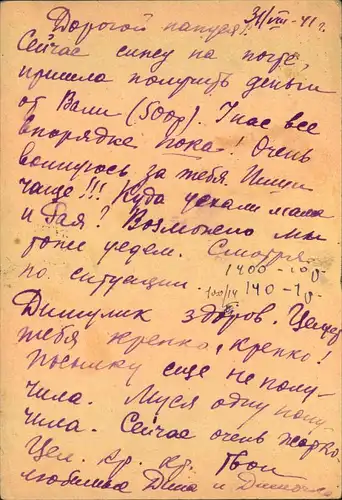 Дорогой папуся! 31/VIII-41 г.
Сейчас сижу на почте,
пришла получить деньги
от Вали (500р). У нас все
впорядке пока! Очень
волнуюсь за тебя. Пиши
чаще!!! Куда уехали мама
и Бая? Возможно мы
тоже уедем. Смотря
по ситуации.
1400-100
100/14 140-10
Димулик здоров. Целую
тебя крепко, крепко!
Посылку еще не полу-
чила. Муся одну полу-
чила. Сейчас очень жарко.
Цел. кр. кр. Твои
любимые Дина и